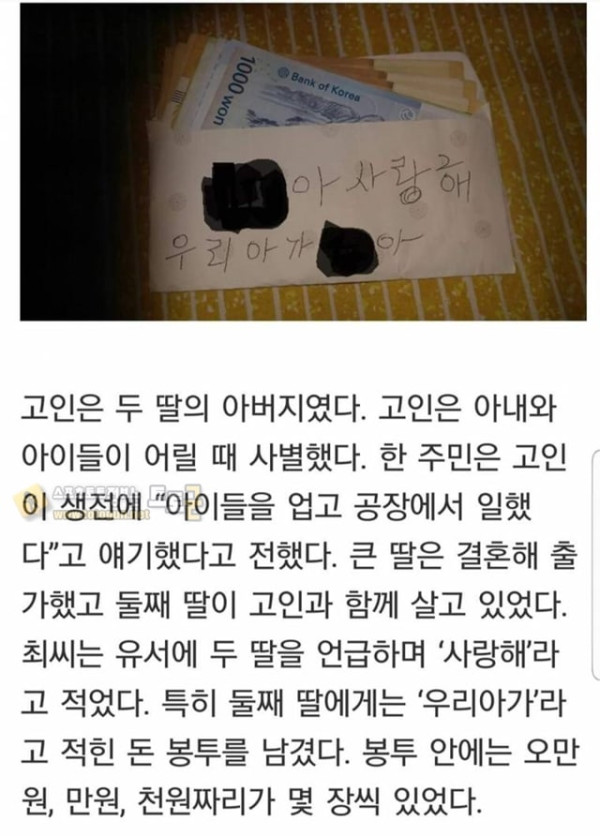 1000 won
Bank of Korea
아 사랑해
우리아가 아
고인은 두 딸의 아버지였다. 고인은 아내와
아이들이 어릴 때 사별했다. 한 주민은 고인
이 생전에 “아이들을 업고 공장에서 일했
다”고 얘기했다고 전했다. 큰 딸은 결혼해 출
가했고 둘째 딸이 고인과 함께 살고 있었다.
최씨는 유서에 두 딸을 언급하며 ‘사랑해’라
고 적었다. 특히 둘째 딸에게는 ‘우리아가’라
고 적힌 돈 봉투를 남겼다. 봉투 안에는 오만
원, 만원, 천원짜리가 몇 장씩 있었다.